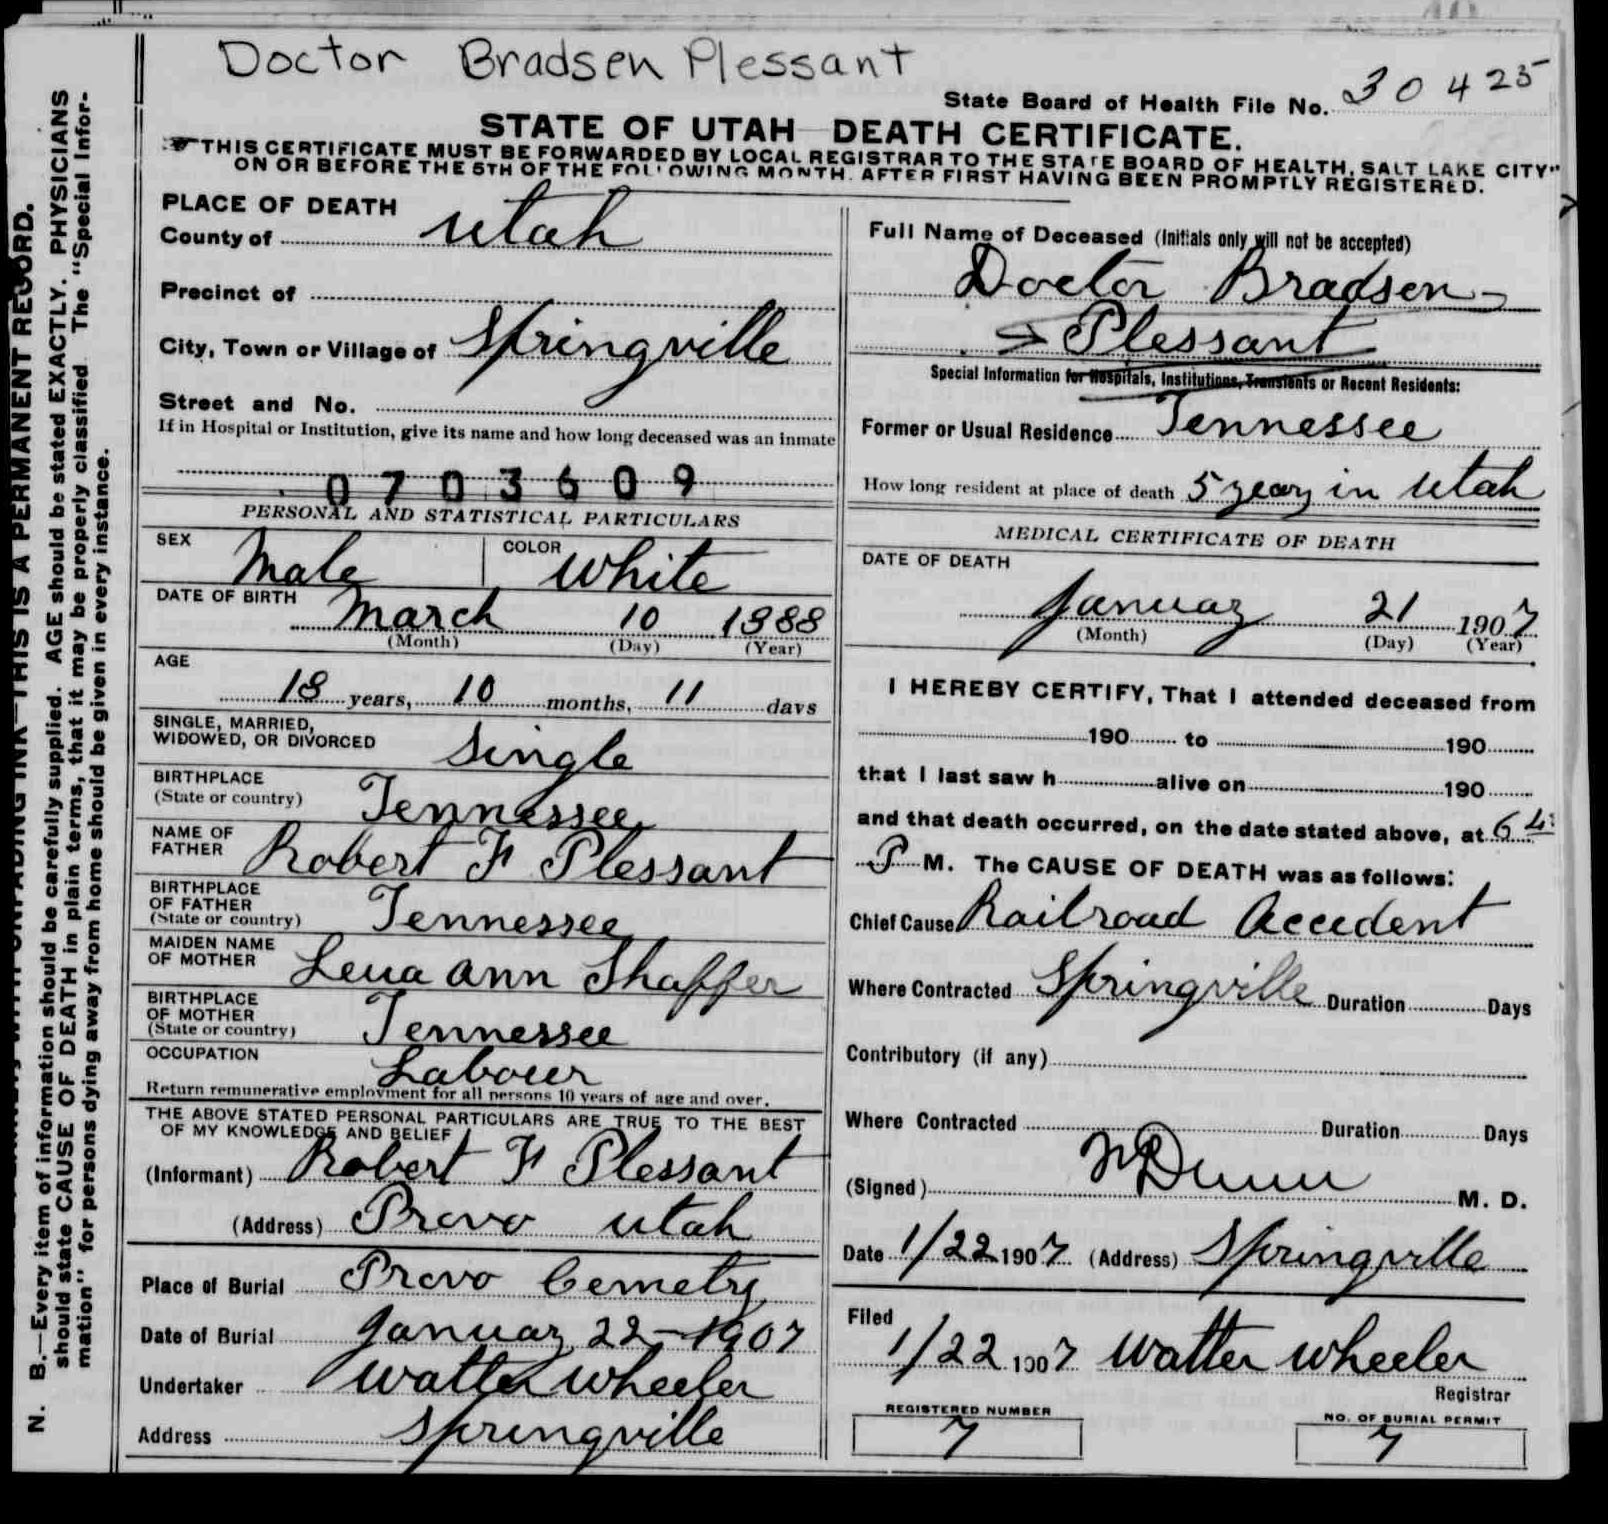 Doctor Bradsen Plessant
State Board of Health File No. 30425
STATE OF UTAH DEATH CERTIFICATE.
THIS CERTIFICATE MUST BE FORWARDED BY LOCAL REGISTRAR TO THE STATE BOARD OF HEALTH, SALT LAKE CITY"
ON OR BEFORE THE 5TH OF THE FOLLOWING MONTH. AFTER FIRST HAVING BEEN PROMPTLY REGISTERED.
PLACE OF DEATH
County of Utah
Precinct of
City, Town or Village of Springville
Street and No.
If in Hospital or Institution, give its name and how long deceased was an inmate
0703609
PERSONAL AND STATISTICAL PARTICULARS
SEX Male COLOR White
DATE OF BIRTH March 10 1888
(Month) (Day) (Year)
AGE
18 years, 10 months, 11 days
SINGLE, MARRIED,
WIDOWED, OR DIVORCED Single
BIRTHPLACE
(State or country) Tennessee
NAME OF
FATHER Robert F Plessant
BIRTHPLACE
OF FATHER
(State or country) Tennessee
MAIDEN NAME
OF MOTHER Ann Shaffer
BIRTHPLACE
OF MOTHER
(State or country) Tennessee
OCCUPATION Labouer
Return remunerative employment for all persons 10 years of age and over.
THE ABOVE STATED PERSONAL PARTICULARS ARE TRUE TO THE BEST
OF MY KNOWLEDGE AND BELIEF
(Informant) Robert F Plessant
(Address) Provo Utah
Place of Burial Provo Cemetry
Date of Burial Januay 22-1907
Undertaker Watter Wheeler
Address Springville
Full Name of Deceased (Initials only will not be accepted)
Doctor Bradsen
Plessant
Special Information for Hospitals, Institutions, Transients or Recent Residents:
Former or Usual Residence Tennessee
How long resident at place of death 5 years in Utah
MEDICAL CERTIFICATE OF DEATH
DATE OF DEATH
Januay 21 1907
(Month) (Day) (Year)
I HEREBY CERTIFY, That I attended deceased from
190 to 190
that I last saw h alive on 190
and that death occurred, on the date stated above, at 6
P M. The CAUSE OF DEATH was as follows:
Chief Cause Railroad Accedent
Where Contracted Springville Duration Days
Contributory (if any)
Where Contracted Duration Days
(Signed) Dunn M. D.
Date 1/22 1907 (Address) Springville
Filed
1/22 1907 Watter Wheeler
Registrar
REGISTERED NUMBER
7
NO. OF BURIAL PERMIT
7
N. B.—Every item of information should be carefully supplied. AGE should be stated EXACTLY. PHYSICIANS
should state CAUSE OF DEATH in plain terms, that it may be properly classified The "Special Infor-
mation" for persons dying away from home should be given in every instance.
UNFADING INK—THIS IS A PERMANENT RECORD.